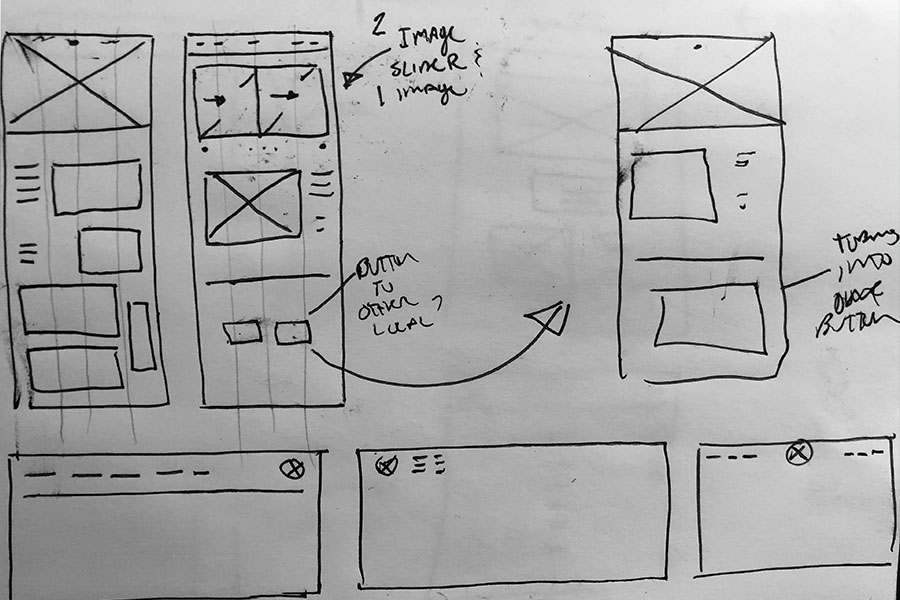 2
IMAGE
SLIDER &
1 IMAGE
BUTTON
TO
OTHER
LOCAL
TURNS
INTO
BUTTON